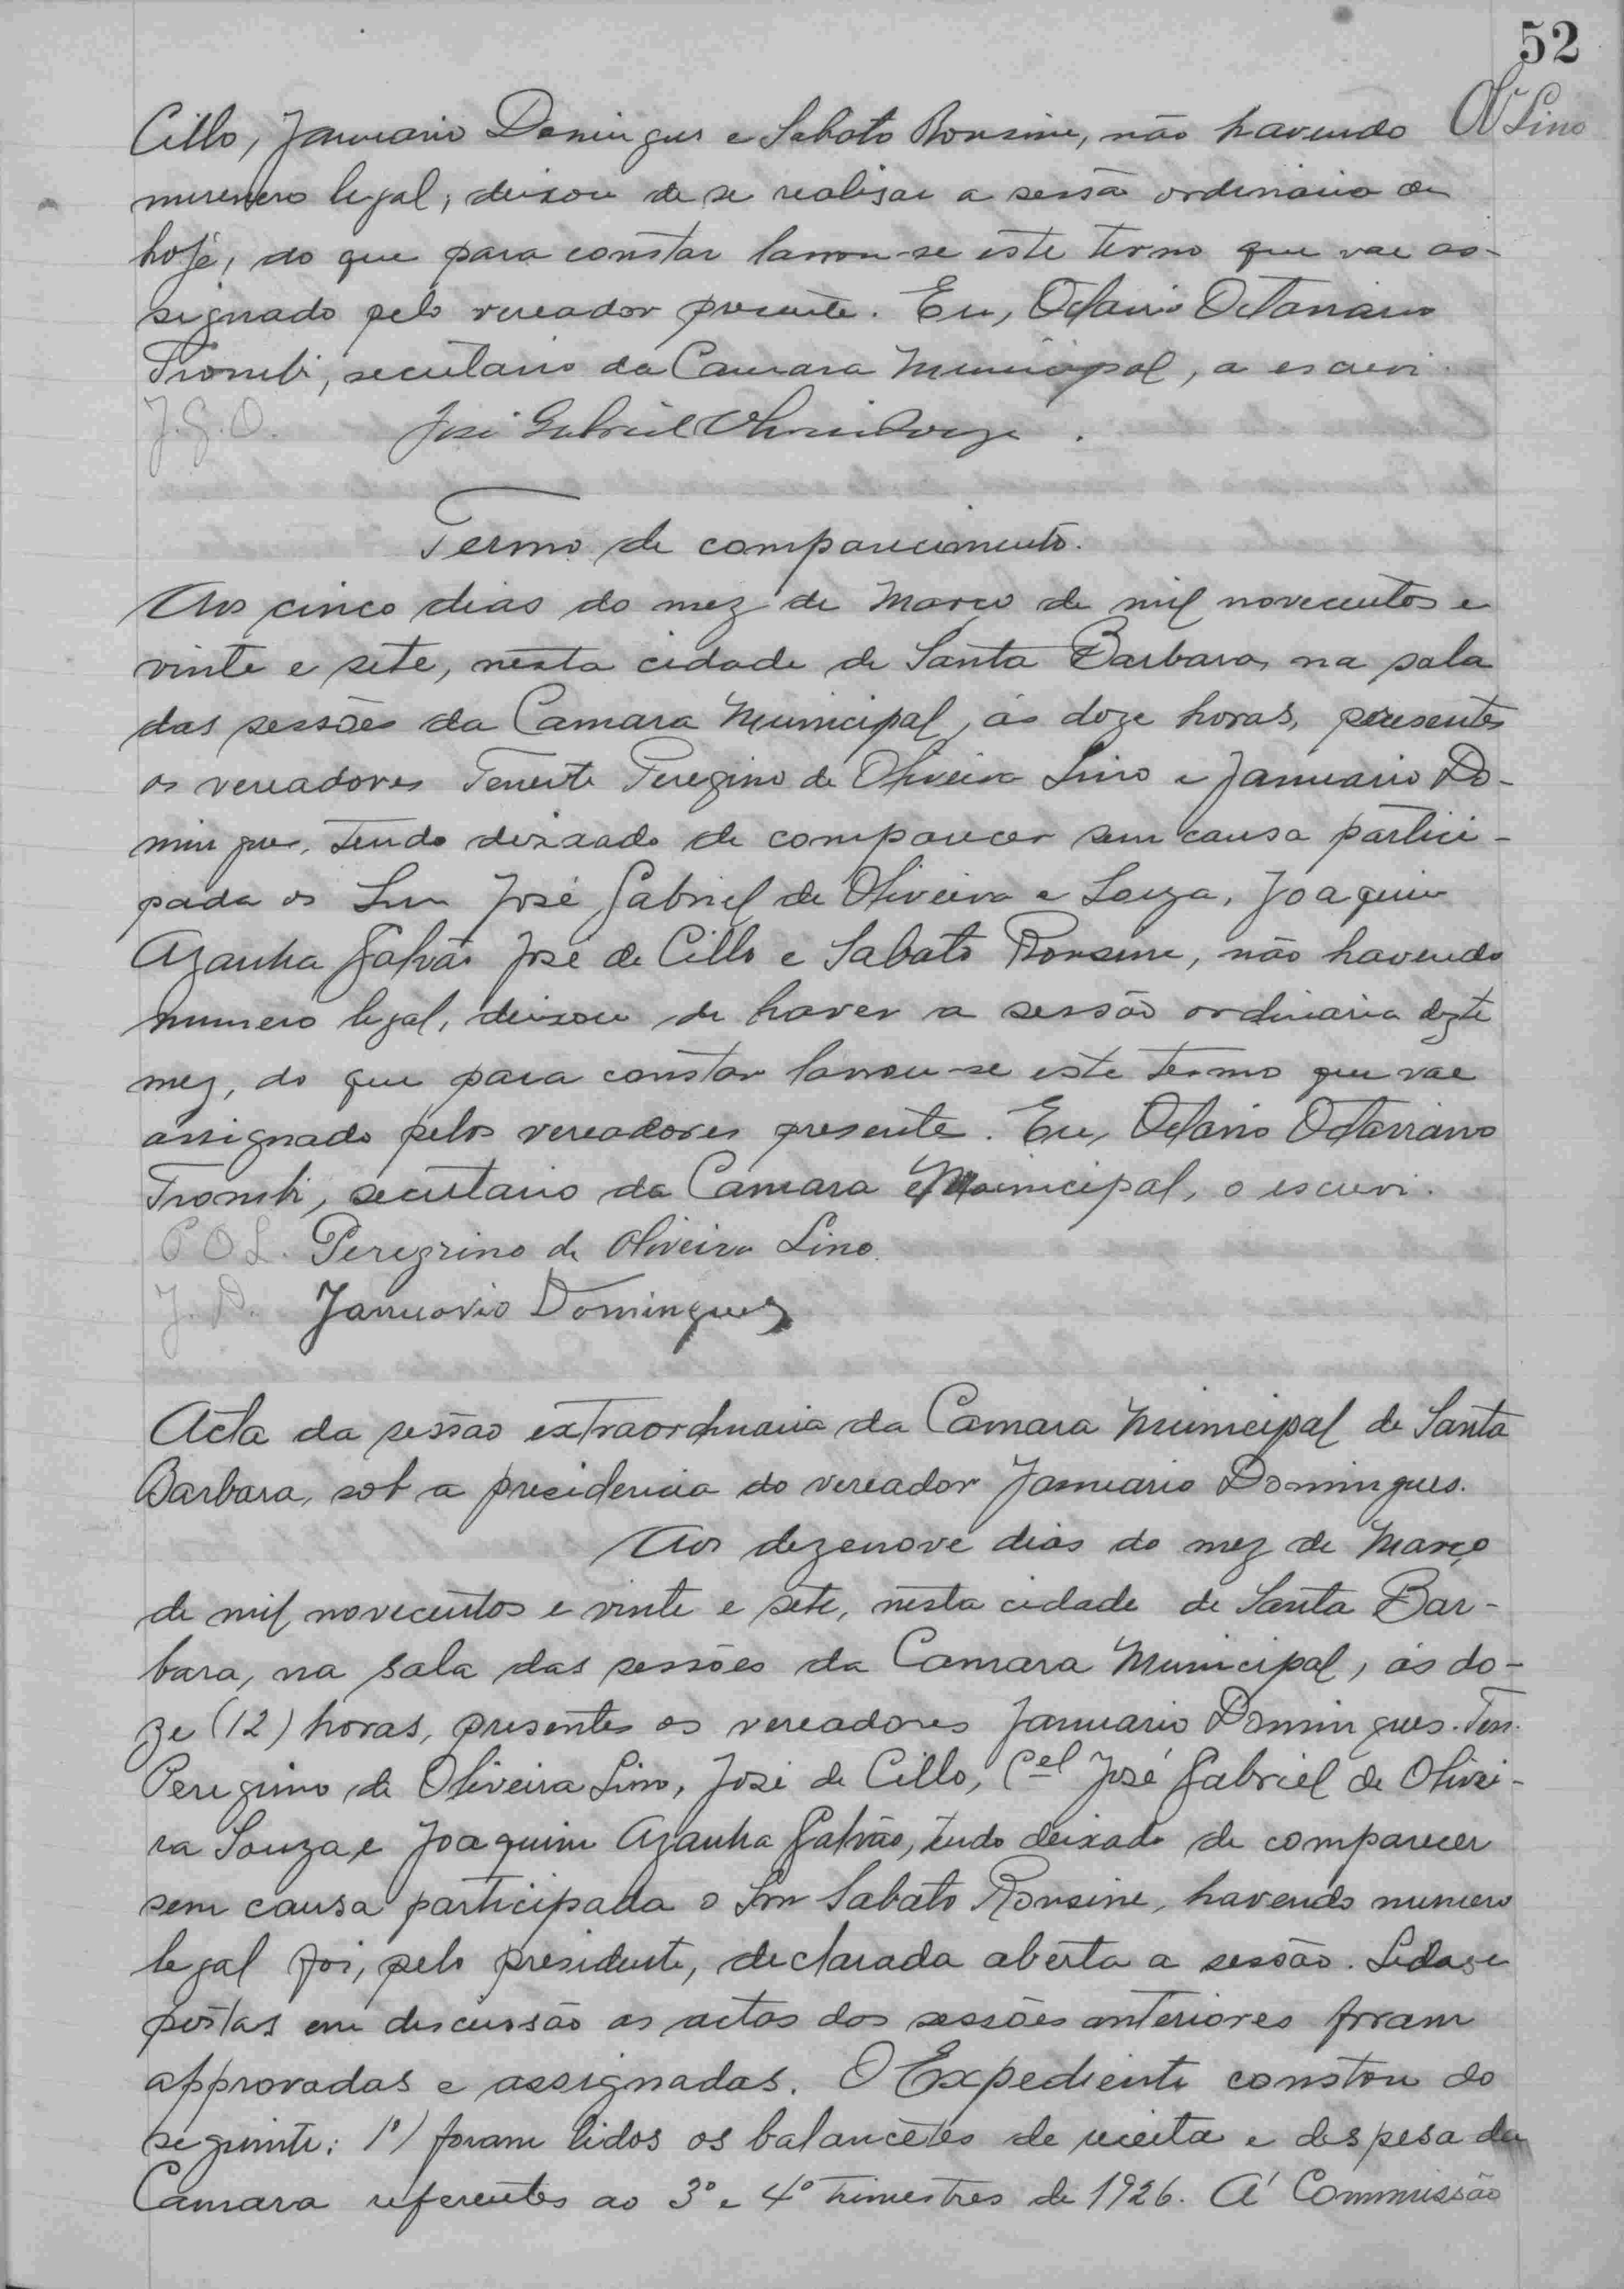 52
OLino
Cillo, Januario Domingues e Sabato Ronsine, não havendo
numero legal, deixou de se realisar a sessão ordinaria de
hoje, do que para constar lavrou-se este termo que vae as-
signado pelo vereador presente. Eu, Octavio Octaviano
Trombi, secretario da Camara Municipal, o escrevi.
J.G.O. José Gabriel Oliveira Souza.
Termo de comparecimento.
Aos cinco dias do mez de Março de mil novecentos e
vinte e sete, nesta cidade de Santa Barbara, na sala
das sessões da Camara Municipal, ás doze horas, presentes
os vereadores Tenente Peregino de Oliveira Lino e Januario Do-
mingues, tendo deixado de comparecer sem causa partici-
pada os Snr José Gabriel de Oliveira e Souza, Joaquim
Azanha Galvão José de Cillo e Sabato Ronsine, não havendo
numero legal, deixou de haver a sessão ordinaria deste
mez, do que para constar lavrou-se este termo que vae
assignado pelos vereadores presente. Eu, Octavio Octaviano
Trombi, secretario da Camara Municipal, o escrevi.
P O L. Peregrino de Oliveira Lino.
J. D. Januario Domingues
Acta da sessão extraordinaria da Camara Municipal de Santa
Barbara, sob a presidencia do vereador Januario Domingues.
Aos dezenove dias do mez de Março
de mil novecentos e vinte e sete, nesta cidade de Santa Bar-
bara, na sala das sessões da Camara Municipal, ás do-
ze (12) horas, presentes os vereadores Januario Domingues. Ten.
Peregrino de Oliveira Lino, José de Cillo, Cel José Gabriel de Olivei-
ra Souza e Joaquim Azanha Galvão, tendo deixado de comparecer
sem causa participada o Snr Sabato Ronsine, havendo numero
legal foi, pelo presidente, declarada aberta a sessão. Lidas e
postas em discussão as actas das sessões anteriores foram
approvadas e assignadas. O Expediente constou do
seguinte: 1º) foram lidos os balancêtes de receita e despesa da
Camara referentes ao 3º e 4º trimestres de 1926. Á Commissão